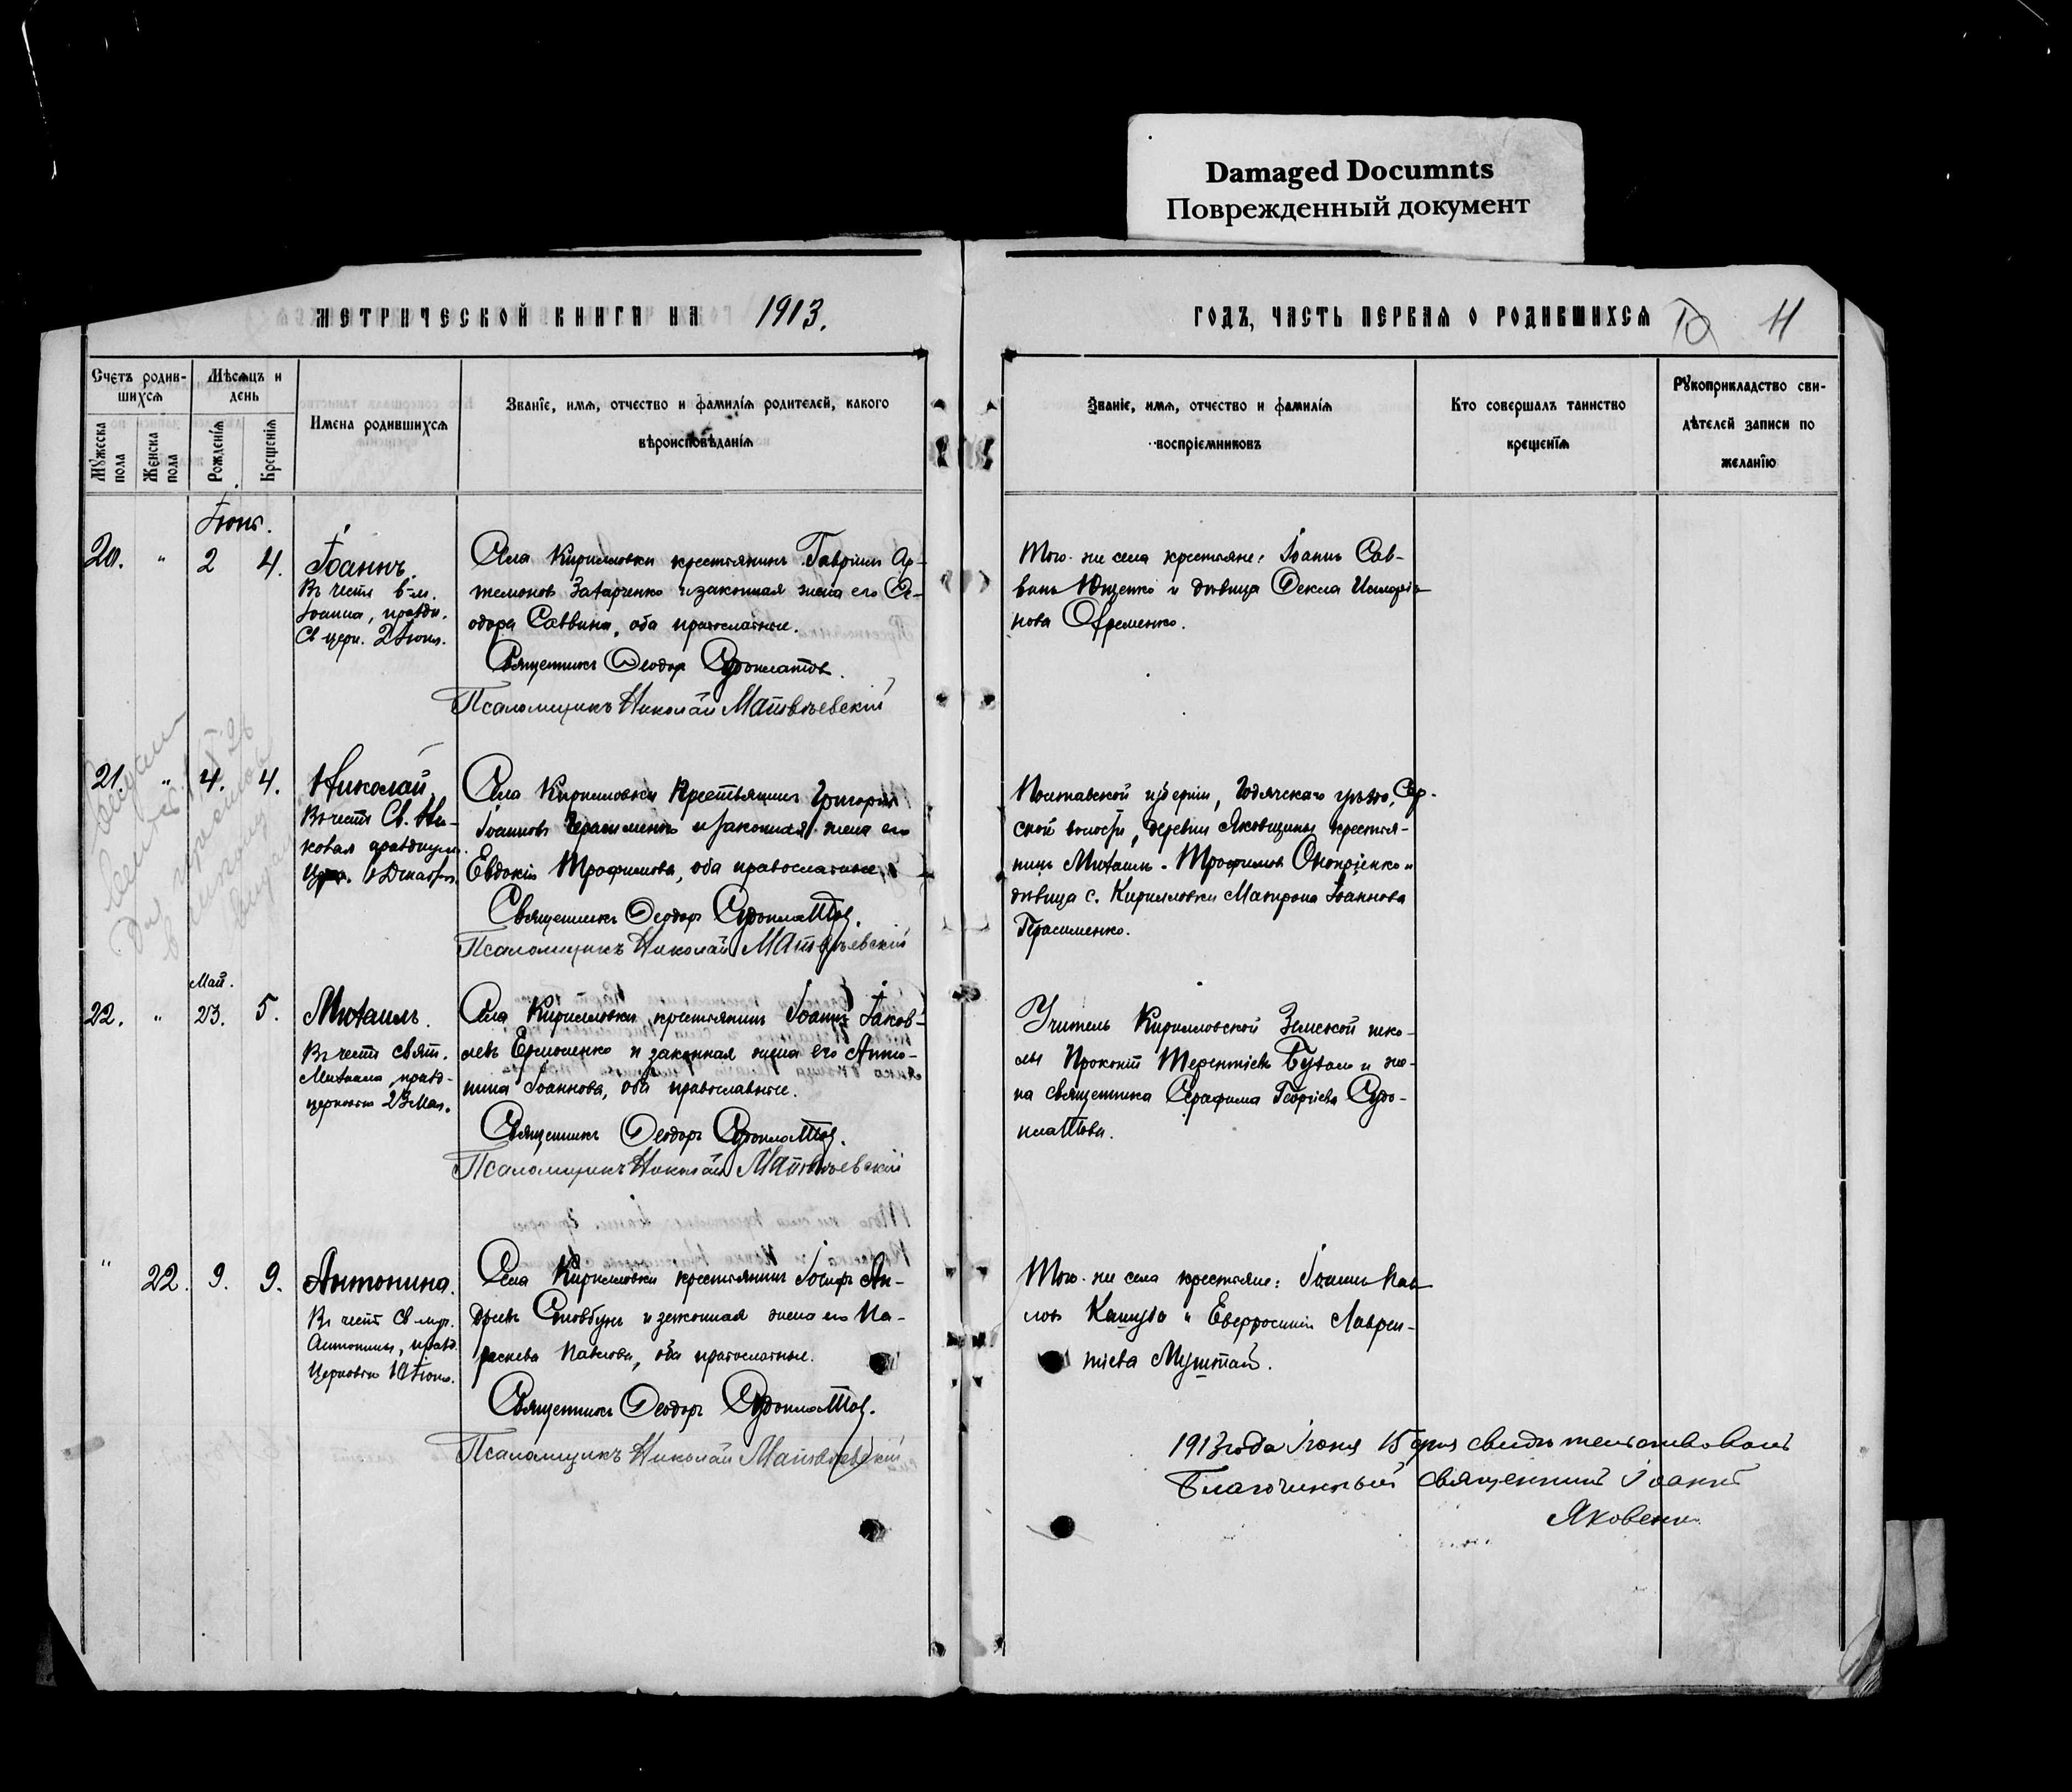 Damaged Documnts
Поврежденный документ
МЕТРИЧЕСКОЙ КНИГИ НА 1913.
ГОДЪ, ЧАСТЬ ПЕРВАЯ О РОДИВШИХСЯ 10 11
Счетъ родив-
шихся
Мѣсяцъ и
день
Мужеска
пола
Женска
пола
Рожденія
Крещенія
Имена родившихся
Званіе, имя, отчество и фамилія родителей, какого
вѣроисповѣданія
Званіе, имя, отчество и фамилія
воспріемниковъ
Кто совершалъ таинство
крещенія
Рукоприкладство сви-
дѣтелей записи по
желанію
Іюнь.
20. " 2 4.
Іоаннъ
Въ честь в-м.
Іоанна, праздн.
Св церк. 2 Іюня.
Села Кирилловки крестьянинъ Гавріилъ Ар-
темоновъ Захарченко и законная жена его Ѳе-
одора Саввина, оба православные.
Священникъ Ѳеодоръ Судоплатов.
Псаломщикъ Николай Матвѣевскій
Того-же села крестьяне: Іоаннъ Сав-
винъ Ющенко и дѣвица Ѳекла
нова Ефременко.
21. " 4. 4.
Николай
Въ честь Св. Ни-
колая празднуем.
6 Декабря.
Села Кирилловки Крестьянинъ Григорій
Іоанновъ Герасименко и законная жена его
Евдокія Трофимова, оба православные.
Священникъ Ѳеодоръ Судоплатов.
Псаломщикъ Николай Матвѣевскій
Полтавской губерніи, Гадячскаго уѣзда, Сар-
ской волости, деревни Яковщины крестья-
нинъ Михаилъ Трофимов Оноприенко и
дѣвица с. Кирилловки Матрона Іоаннова
Герасименко.
Май.
22. " 23. 5.
Михаилъ.
Въ честь свят.
Михаила, празд-
церковью 23 Мая.
Села Кирилловки крестьянинъ Іоаннъ Іаков-
левъ Ермоленко и законная жена его Анто-
нина Іоаннова, оба православные.
Священникъ Ѳеодоръ Судоплатов.
Псаломщикъ Николай Матвѣевскій
Учитель Кирилловской Земской шко-
лы Прокопій Терентіевъ и же-
на священника Серафима Георгіева Судо-
платова.
" 22. 9. 9.
Антонина.
Въ честь Св муч.
Антонины, празд.
Церковью 10 Іюня.
Села Кирилловки крестьянинъ Іосифъ Ан-
дреевъ Стовбунъ и законная жена его Па-
раскева Павлова, оба православные.
Священникъ Ѳеодоръ Судоплатов.
Псаломщикъ Николай Матвѣевскій
Того-же села крестьяне: Іоаннъ Пав-
ловъ и Евфросинія Лаврен-
тіева Муштай.
1913 года Іюня 15 дня свидѣтельствовалъ
Благочинный священникъ Іоаннъ
Яковенко